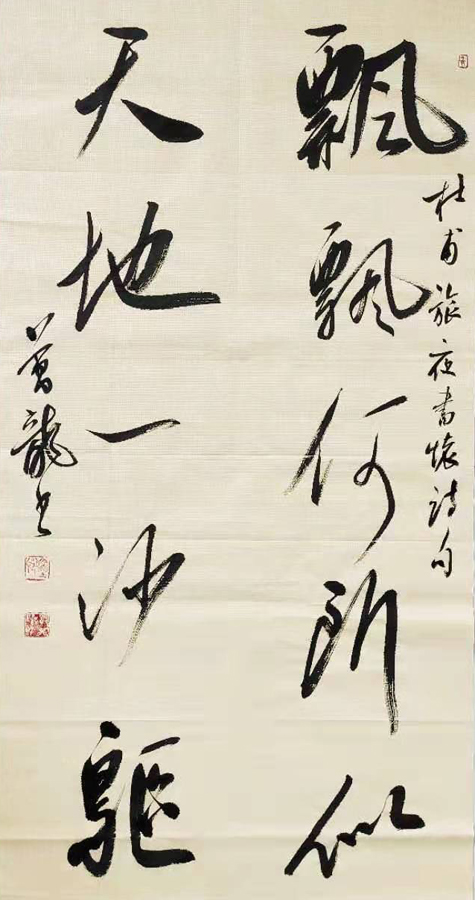 飄飄何所似
杜甫旅夜書懷詩句
天地一沙鷗
龍書